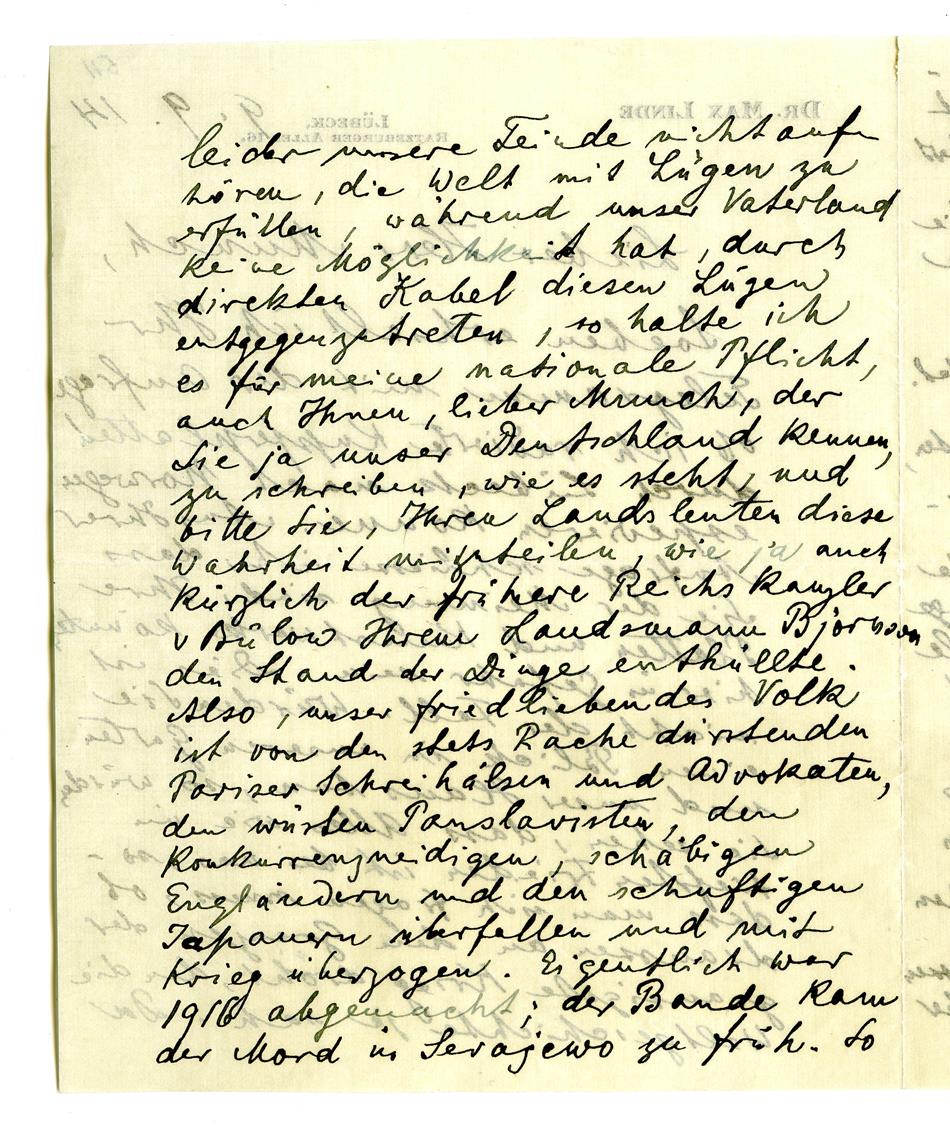 leider unsere Feinde nicht auf-
hören, die Welt mit Lügen zu
erfüllen, während unser Vaterland
keine Möglichkeit hat, durch
direkten Kabel diesen Lügen
entgegenzutreten, so halte ich
es für meine nationale Pflicht,
auch Ihnen, lieber Munch, der
Sie ja unser Deutschland kennen,
zu schreiben, wie es steht, und
bitte Sie, Ihren Landsleuten diese
Wahrheit mitzuteilen, wie ja auch
kürzlich der frühere Reichskanzler
v Bülow Ihrem Landsmann Björnson
den Stand der Dinge enthüllte.
Also, unser friedliebendes Volk
ist von den stets Rache dürstenden
Pariser Schreihälsen und Advokaten,
den wüsten Panslavisten, den
konkurrenzneidigen, schäbigen
Engländern und den schuftigen
Japanern überfallen und mit
Krieg überzogen. Eigentlich war
1916 abgemacht; der Bande kam
der Mord in Serajewo zu früh. So
DR. MAX LINDE
LÜBECK,
RATZEBURGER ALLEE 16.
9. 9. 14